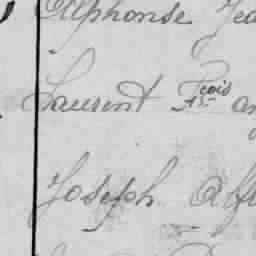 Alphonse Jea
Laurent Fçois an
Joseph Alf